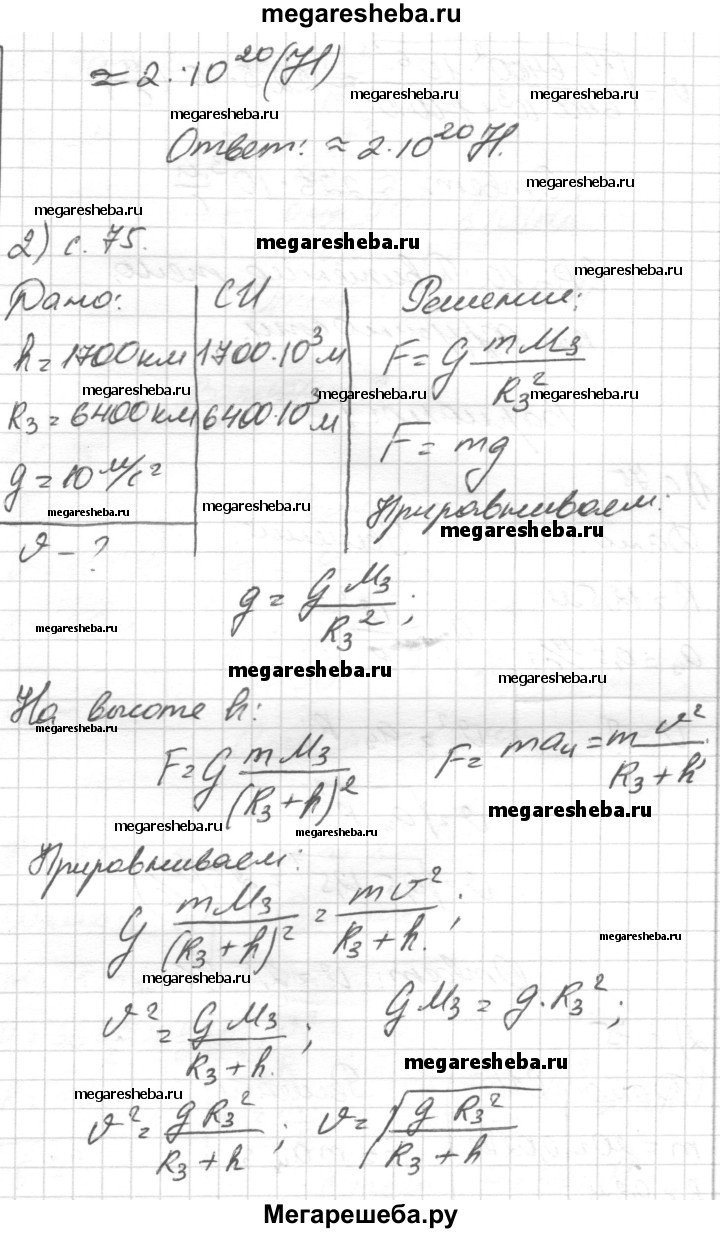 megaresheba.ru
≈ 2·10²⁰ (Н)
megaresheba.ru megaresheba.ru megaresheba.ru
Ответ: ≈ 2·10²⁰ Н.
megaresheba.ru
megaresheba.ru
2) с. 75.
megaresheba.ru
megaresheba.ru
Дано: СИ Решение:
h = 1700 км 1700·10³ м F = G mMз/Rз²
megaresheba.ru megaresheba.ru megaresheba.ru
Rз = 6400 км 6400·10³ м
F = mg
g = 10 м/с²
megaresheba.ru megaresheba.ru Приравниваем:
megaresheba.ru
v - ?
g = GMз/Rз²;
megaresheba.ru
megaresheba.ru
megaresheba.ru
На высоте h:
megaresheba.ru
F = G mMз/(Rз+h)² F = maц = mv²/(Rз+h),
megaresheba.ru
megaresheba.ru megaresheba.ru
Приравниваем:
G mMз/(Rз+h)² = mv²/(Rз+h);
megaresheba.ru
megaresheba.ru
v² = GMз/(Rз+h); GMз = g·Rз²;
megaresheba.ru
megaresheba.ru
v² = gRз²/(Rз+h); v = √(gRз²/(Rз+h))
Мегарешеба.ру